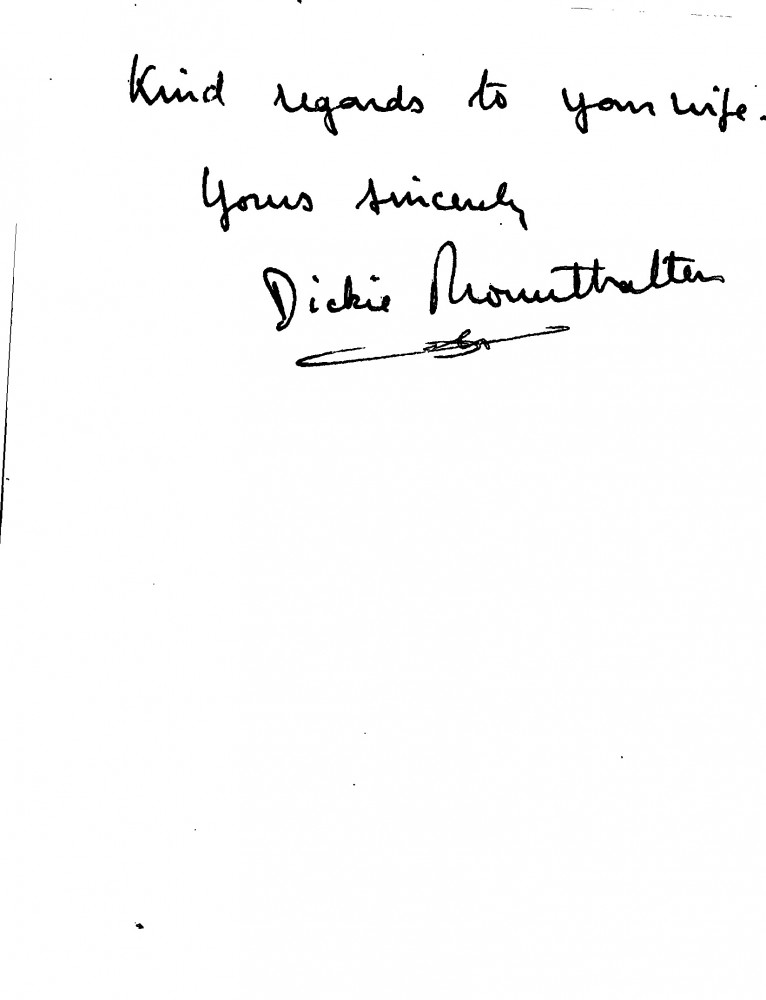 Kind regards to your wife.
Yours sincerely
Dickie Mountbatten